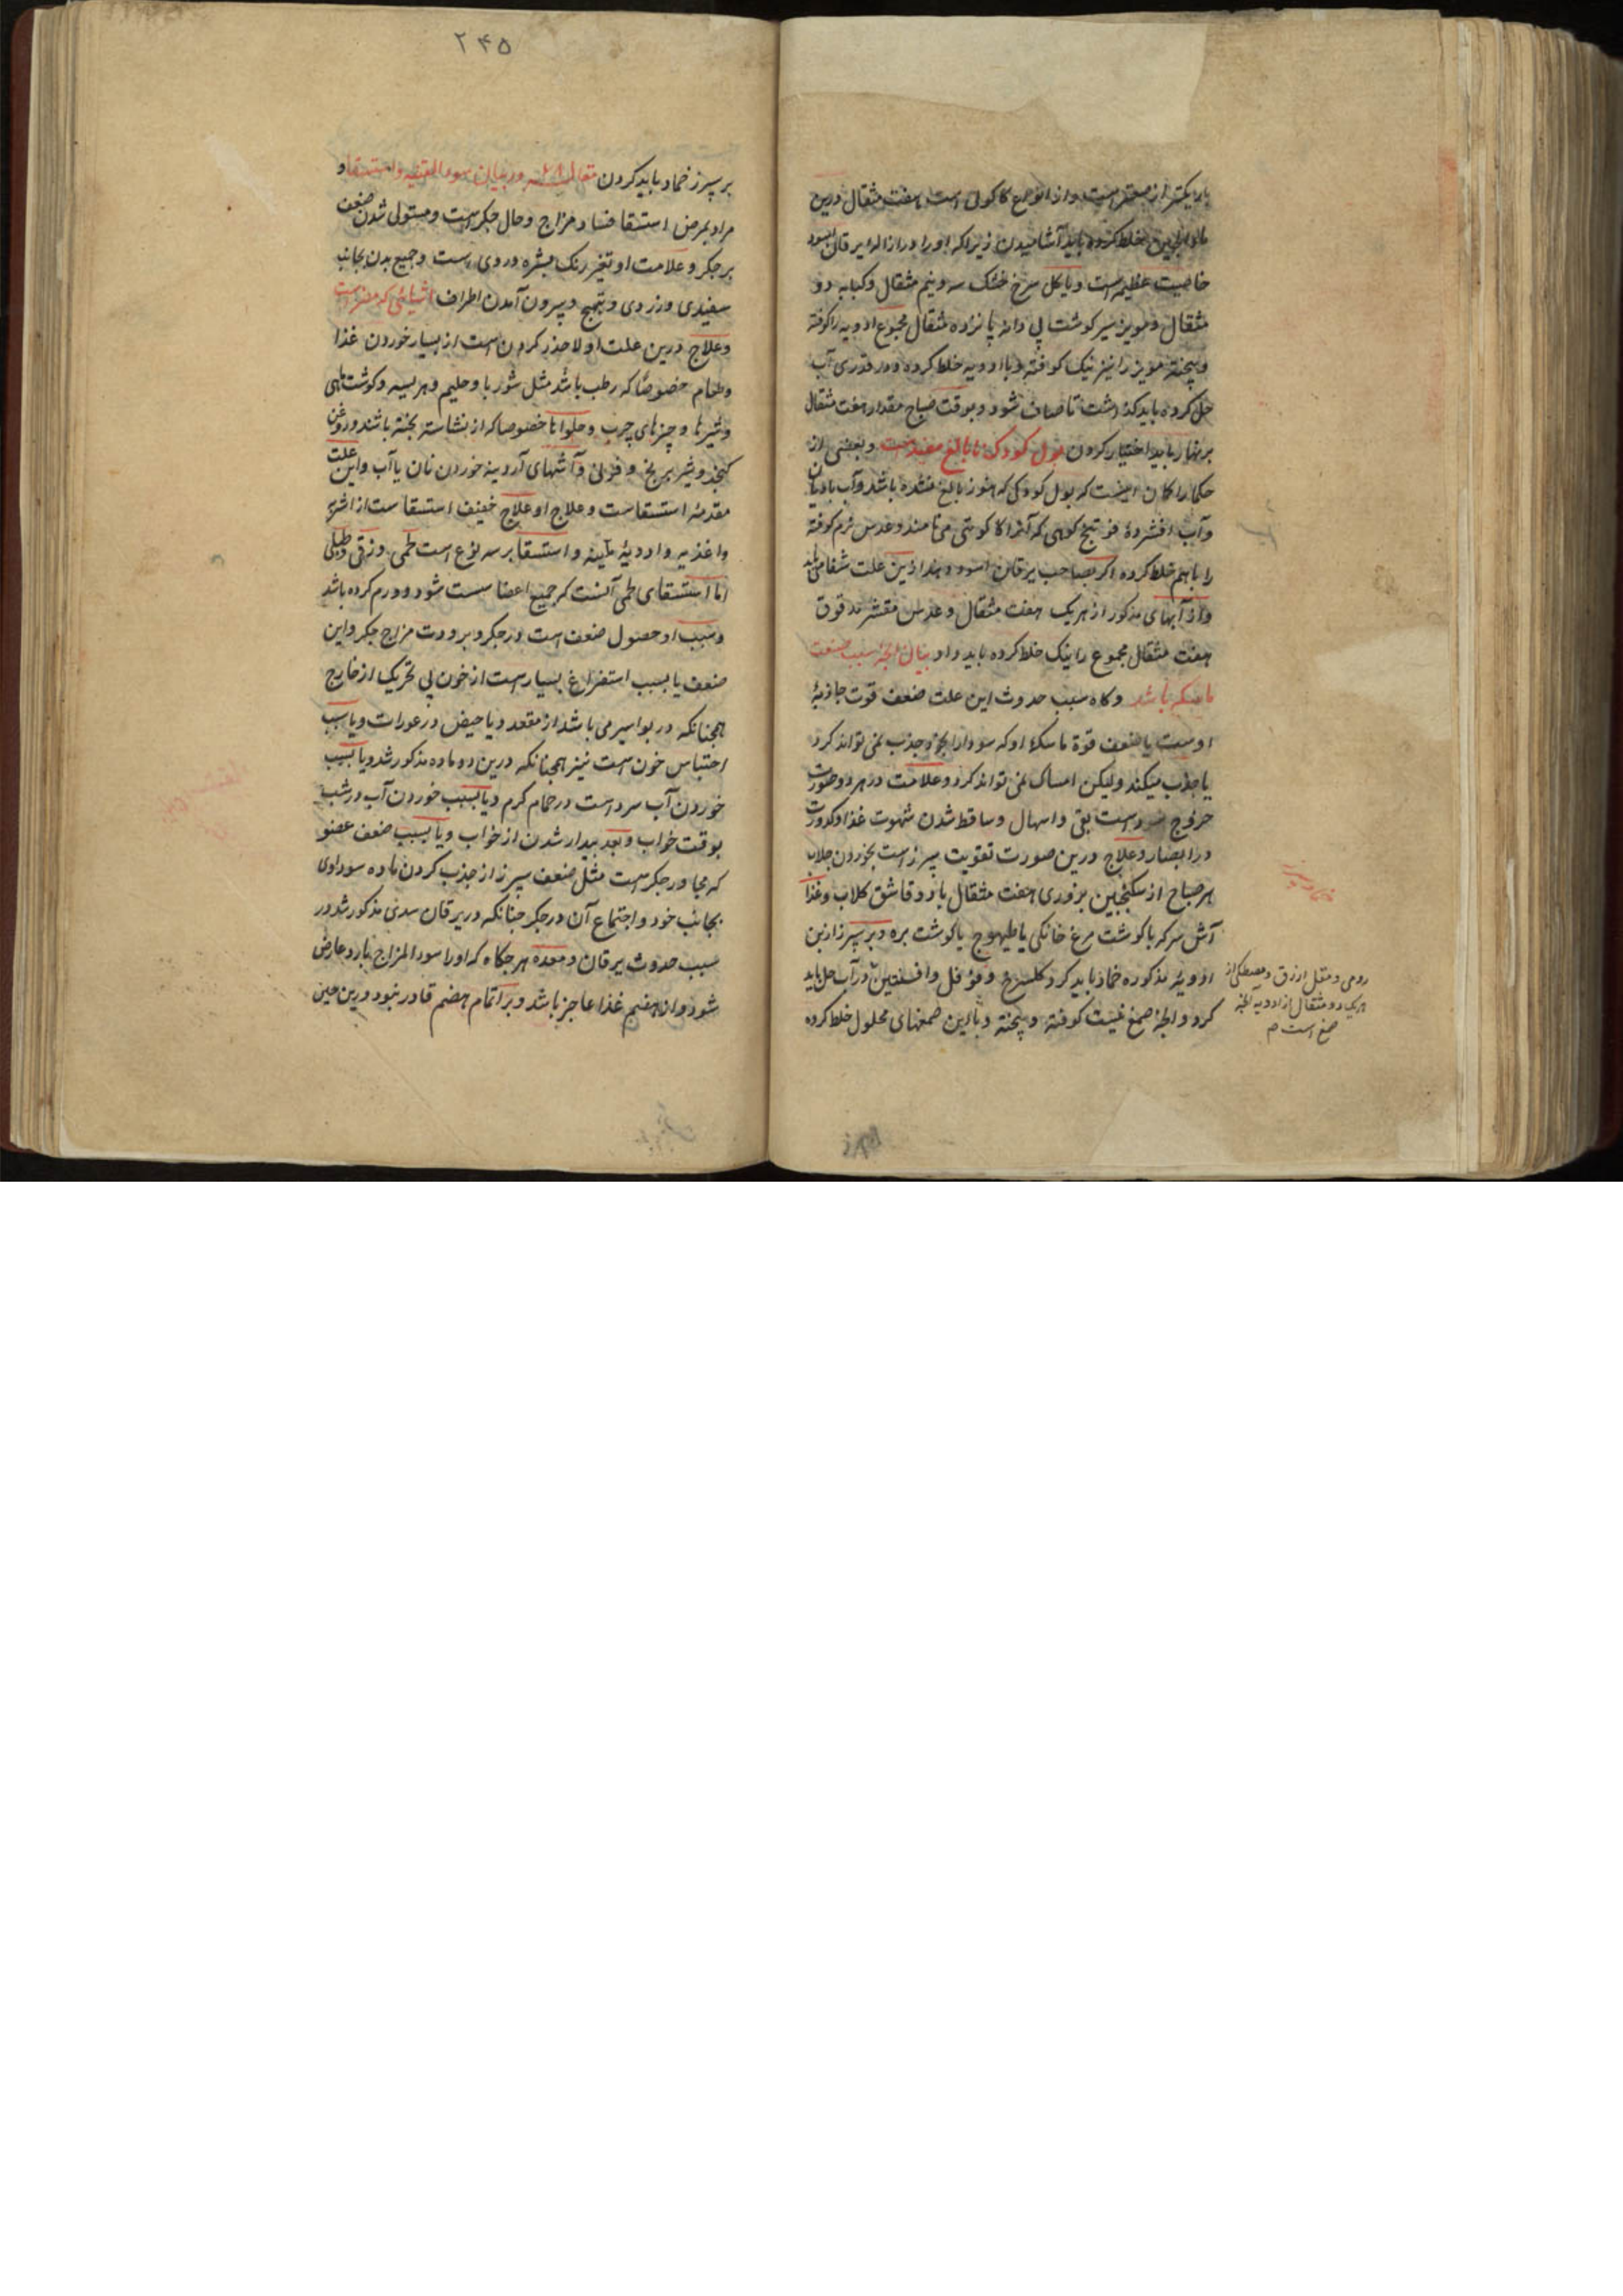 خاصیت عظیم است و یا کل سرخ خشک سه و نیم مثقال و کبابه دو
مثقال و مویز سیر کوشت پی دانه پانزده مثقال مجموع ادویه را کوفته
و پیخته مویز را نیز نیک کوفته و با ادویه خلط کرده و در قدری آب
حل کرده باید کذاشت تا صاف شود و بوقت صباح مقدار هفت مثقال
بر نهار باید اختیار کردن بول کودک نا بالغ مفید است و بعضی از
حکما را کمان اینست که بول کودکی که هنوز بالغ نشده باشد و آب بادیان
و آب افشردهٔ فوتنج کوهی که آنرا کاکوتی می نامند و عدس نرم کوفته
را باهم خلط کرده اکر بصاحب یرقان اسود دهند ازین علت شفا می یابد
و از آبهای مذکور از هریک هفت مثقال و عدس مقشر مدقوق
هفت مثقال مجموع را نیک خلط کرده باید داد بیان آنچه سبب ضعف
ماسکه باشد و کاه سبب حدوث این علت ضعف قوت جاذبهٔ
اوست یا ضعف قوة ماسکهٔ او که سودا را بخود جذب نمی تواند کرد
یا جذب میکند ولیکن امساک نمی تواند کرد و علامت در هر دو صورت
خروج سوداست بقی و اسهال و ساقط شدن شهوت غذا و کدورت
در ابصار و علاج درین صورت تقویت سپرز است بخوردن جلاب
هر صباح از سکنجبین بزوری هفت مثقال با دو قاشق کلاب و غذا
آش سرکه با کوشت مرغ خانکی یا طیهوج یا کوشت بره و بر سپرز ازین
ادویهٔ مذکوره ضماد باید کرد کلسرخ و فوفل و افسنتین در آب حل باید
کرد و آنچه صمغ نیست کوفته و پیخته و با این صمغهای محلول خلط کرده
رومی و مقل ازرق و مصطکی از
هریک دو مثقال از ادویه آنچه
صمغ است م
ضماد سپرز
۲۴۵
بر سپرز ضماد باید کردن مقاله در بیان سوء القنیه و استسقا و
مراد بمرض استسقا فساد مزاج و حال جکر است و مستولی شدن ضعف
بر جکر و علامت او تغیر رنک بشره و روی است و جمیع بدن بجانب
سفیدی و زردی و تهبج و بیرون آمدن اطراف اشیائی که مضر است
و علاج درین علت اولا حذر کردن است از بسیار خوردن غذا
و طعام خصوصا که رطب باشد مثل شوربا و حلیم و هریسه و کوشت ماهی
و شیرها و چیزهای چرب و حلواها خصوصا که از نشاسته پخته باشند و روغن
کنجد و شیر برنج و فرنی و آشهای آردینه خوردن نان با آب و این علت
مقدمهٔ استسقاست و علاج او علاج خفیف استسقاست از اشربه
و اغذیه و ادویهٔ ملینه و استسقا بر سه نوع است لحمی و زقی و طبلی
اما استسقای لحمی آنست که جمیع اعضا سست شود و ورم کرده باشد
و سبب او حصول ضعف است در جکر و برودت مزاج جکر و این
ضعف یا بسبب استفراغ بسیار است از خون پی تحریک از خارج
همچنانکه در بواسیر می باشد از مقعد و یا حیض در عورات و یا سبب
احتباس خون است نیز همچنانکه درین دو ماده مذکور شد و یا بسبب
خوردن آب سرد است در حمام کرم و یا بسبب خوردن آب در شب
بوقت خواب و بعد بیدار شدن از خواب و یا بسبب ضعف عضو
که مجاور جکر است مثل ضعف سپرز از جذب کردن ماده سوداوی
بجانب خود و اجتماع آن در جکر چنانکه در یرقان سدی مذکور شد در
سبب حدوث یرقان و معده هرجکاه که او را سوء المزاج بارد عارض
شود و از هضم غذا عاجز باشد و بر اتمام هضم قادر نبود درین حین